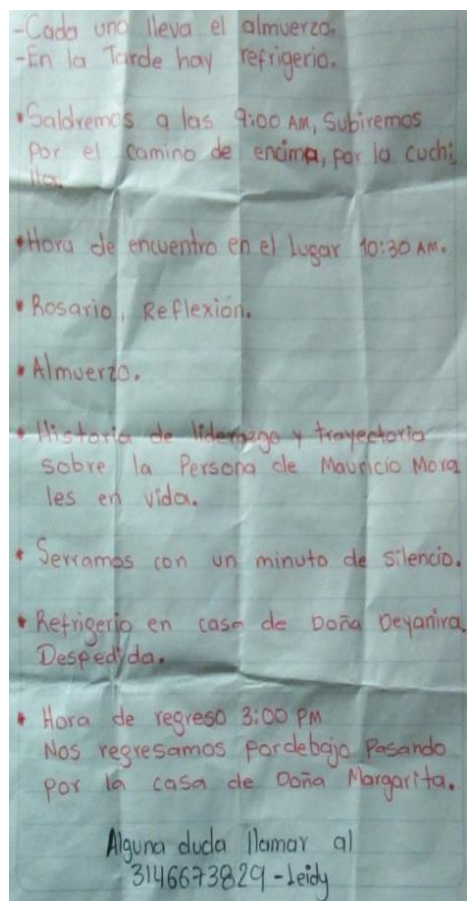 -Cada uno lleva el almuerzo.
-En la Tarde hay refrigerio.
*Saldremos a las 9:00 AM, Subiremos
Por el camino de encima, por la cuchi
lla.
*Hora de encuentro en el Lugar 10:30 AM.
*Rosario, Reflexión.
*Almuerzo.
*Historia de liderazgo y trayectoria
sobre la Persona de Mauricio Mora
les en vida.
*Serramos con un minuto de silencio.
*Refrigerio en casa de Doña Deyanira.
Despedida.
*Hora de regreso 3:00 PM
Nos regresamos pordebajo Pasando
por la casa de Doña Margarita.
Alguna duda llamar al
3146673829-Leidy